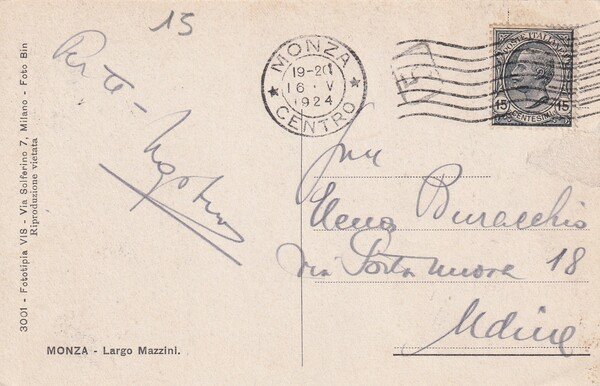 15
MONZA
19-20
16 · V
1924
CENTRO
POSTE ITALIANE
15 15
CENTESIMI
Elena Buracchio
via Porta nuova 18
Udine
3001 - Fototipia VIS - Via Solferino 7, Milano - Foto Bin
Riproduzione vietata
MONZA - Largo Mazzini.